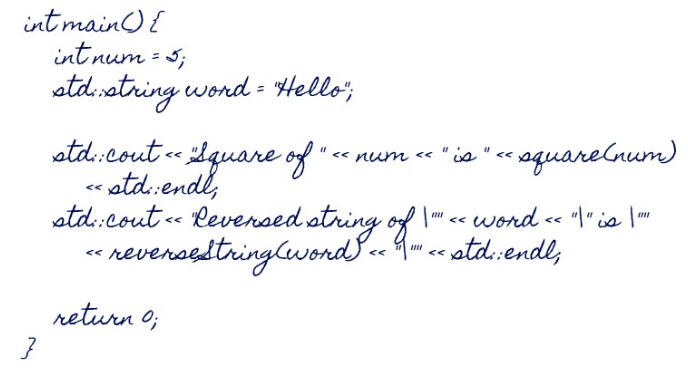 int main() {
int num = 5;
std::string word = "Hello";
std::cout << "Square of " << num << " is " << square(num)
<< std::endl;
std::cout << "Reversed string of \"" << word << "\" is \""
<< reverseString(word) << "\"" << std::endl;
return 0;
}